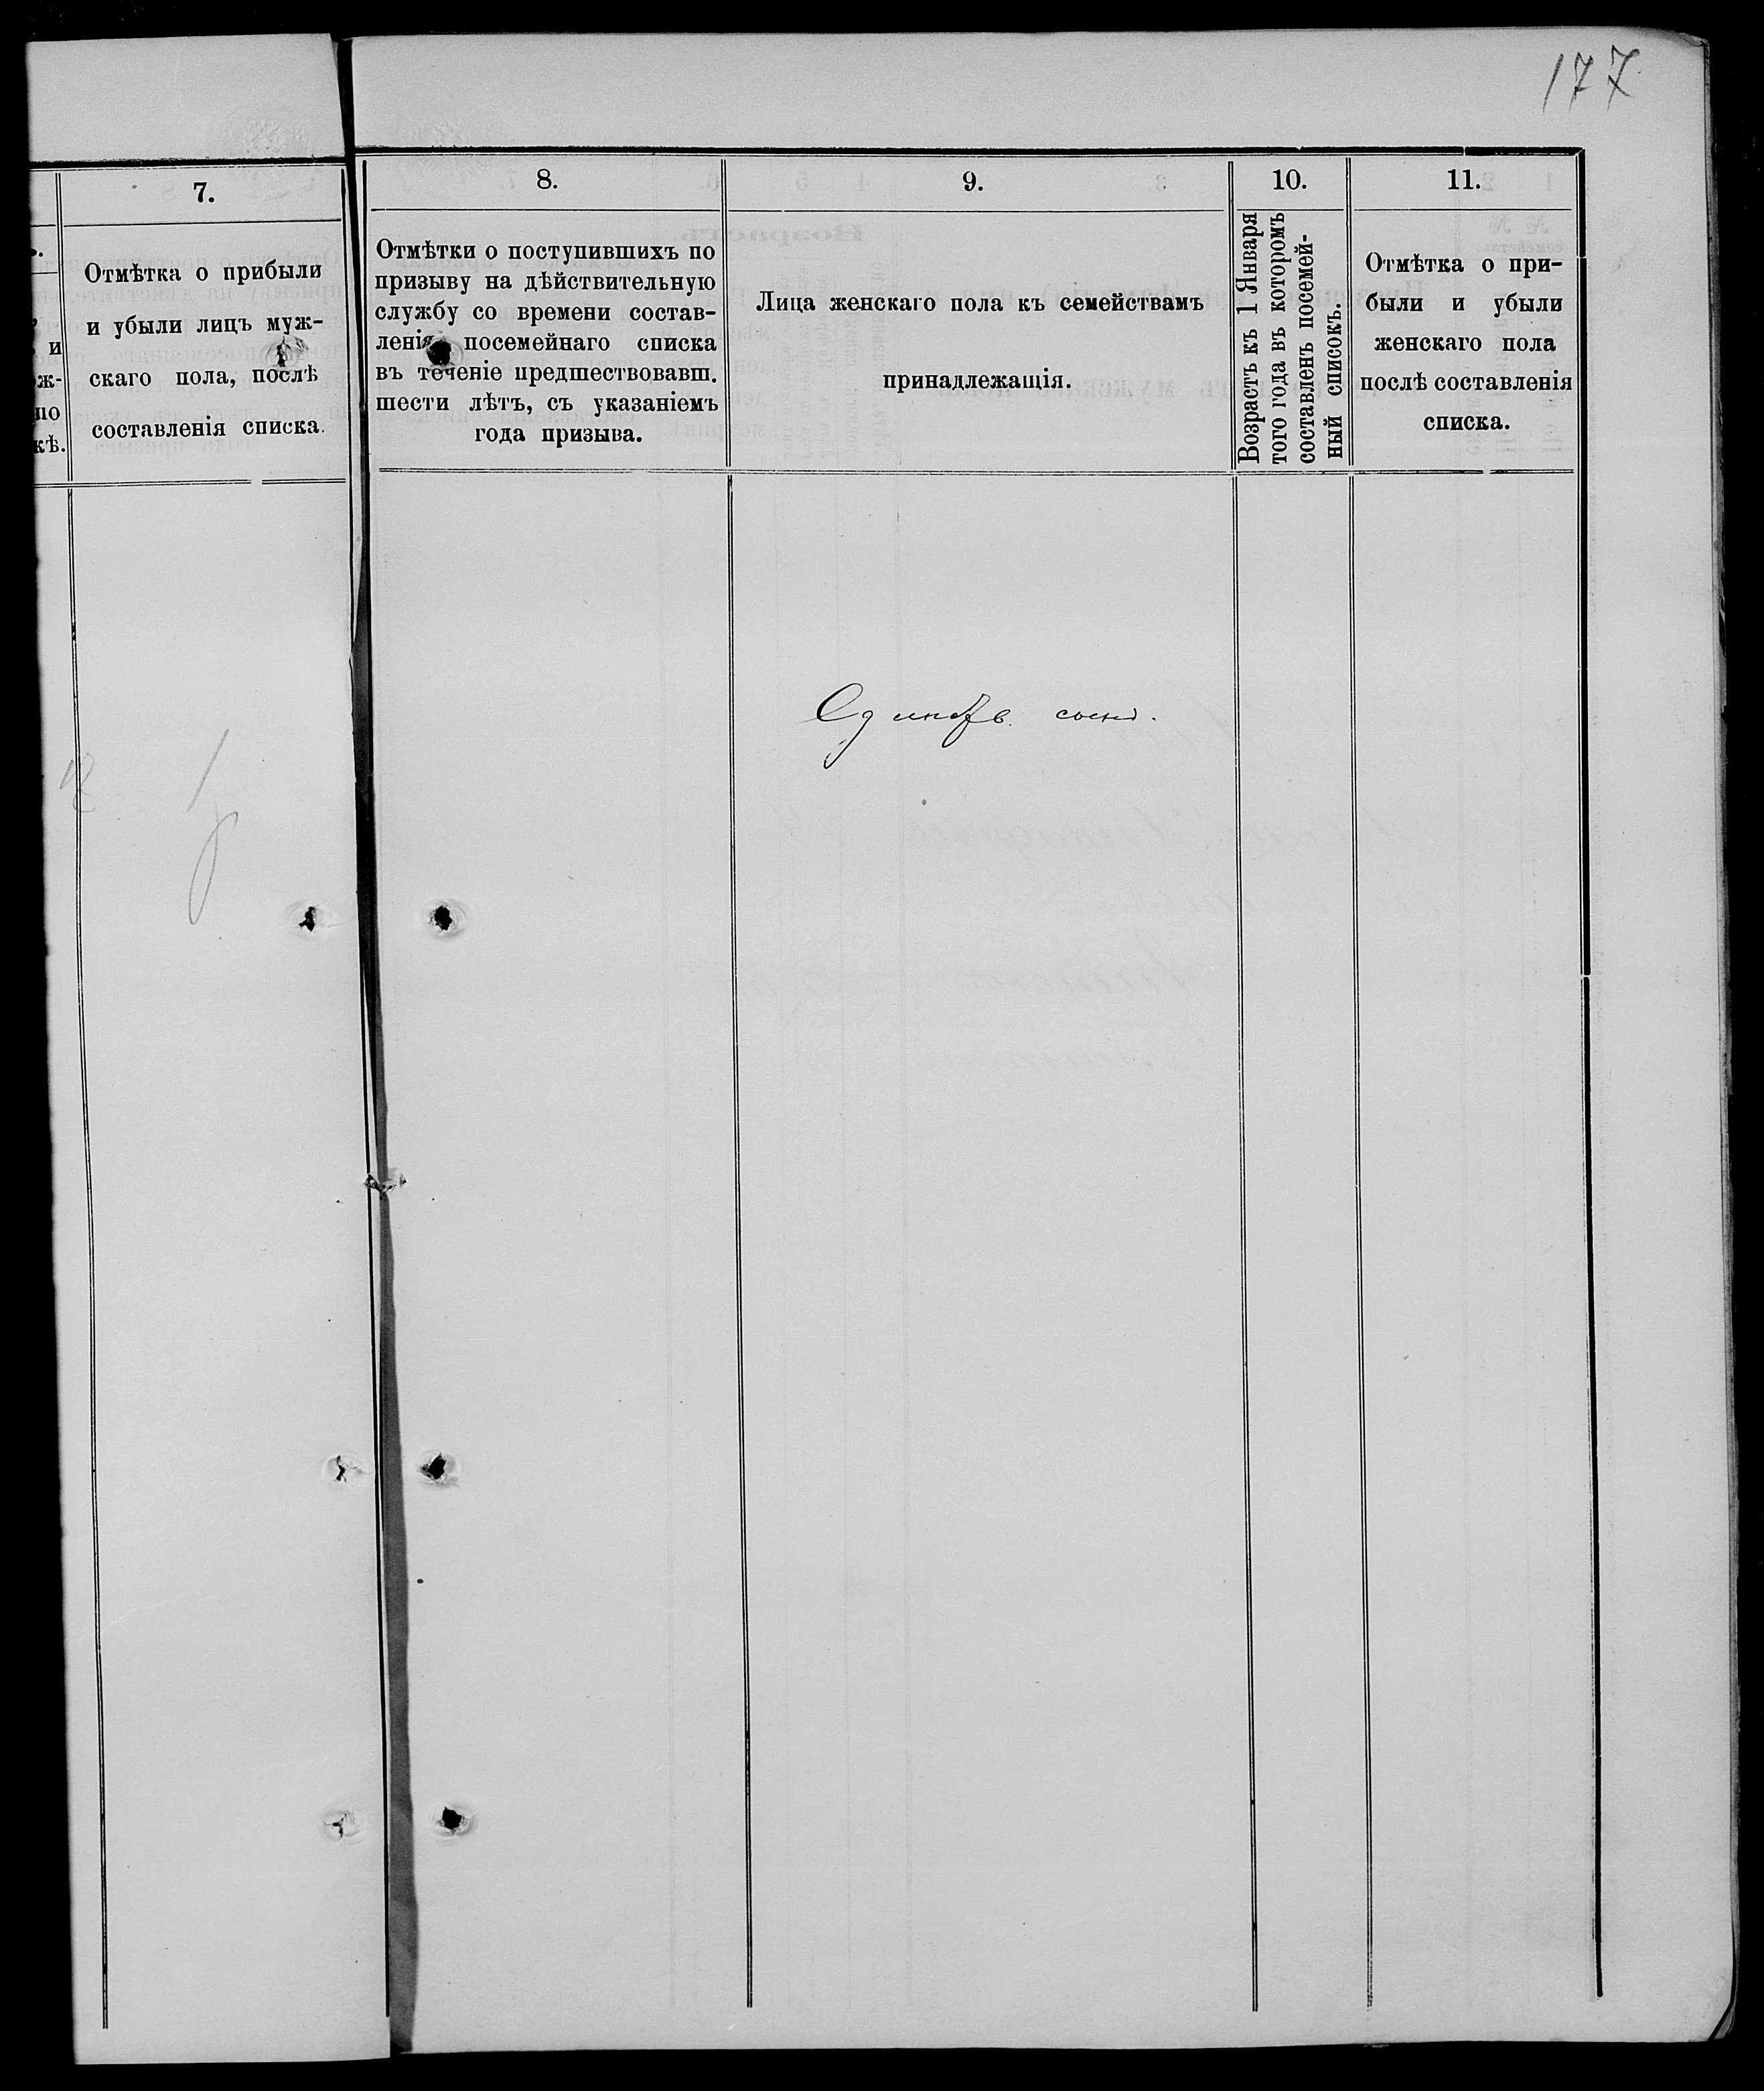 177
7.
Отмѣтка о прибыли
и убыли лицъ муж-
скаго пола, послѣ
составленія списка.
и
ж-
по
кѣ.
8.
Отмѣтки о поступившихъ по
призыву на дѣйствительную
службу со времени состав-
ленія посемейнаго списка
въ теченіе предшествовавш.
шести лѣтъ, съ указаніемъ
года призыва.
9.
Лица женскаго пола къ семействамъ
принадлежащія.
10.
Возрастъ къ 1 Января
того года въ которомъ
составленъ посемей-
ный списокъ.
11.
Отмѣтка о при-
были и убыли
женскаго пола
послѣ составленія
списка.
Единств. сынъ.